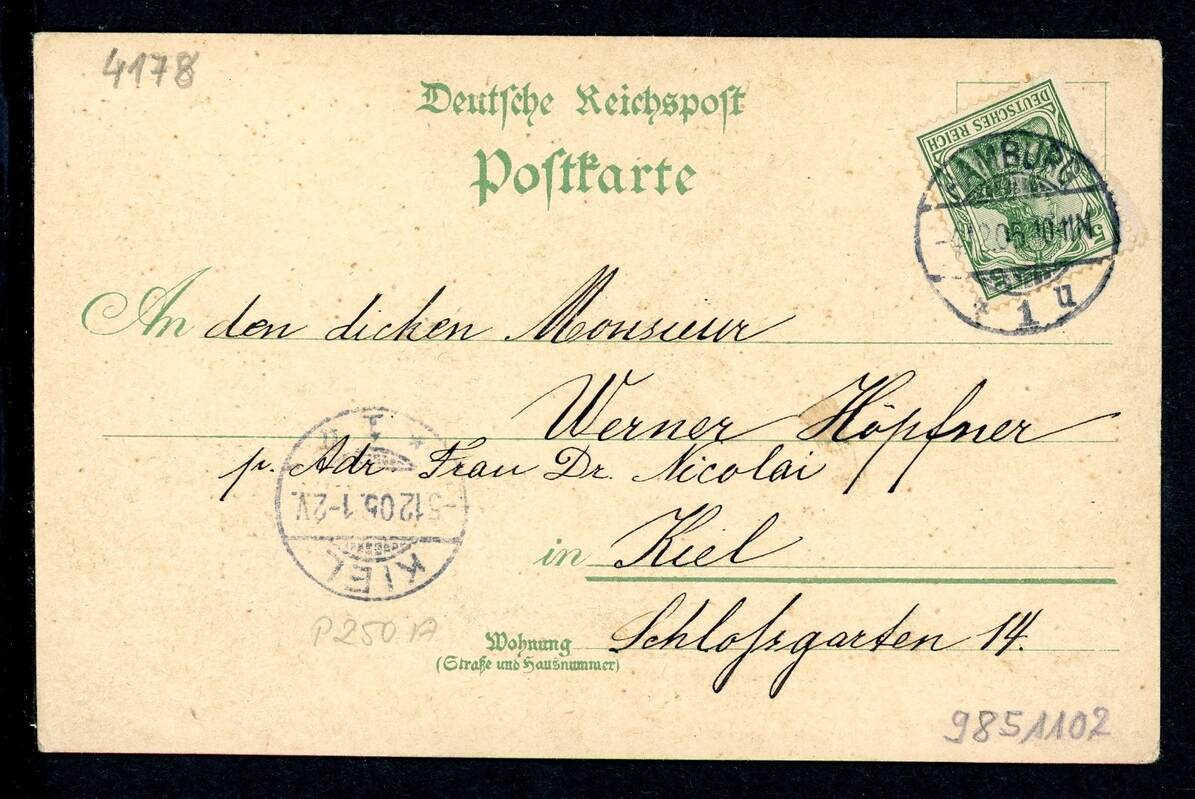 4178
Deutsche Reichspost
Postkarte
DEUTSCHES REICH
5
HAMBURG
4.12.05. 10-11N
* 1 u
An den dicken Monsieur
Werner Höpfner
p. Adr Frau Dr. Nicolai
in Kiel
KIEL
-5.12.05. 1-2V.
* 1 u
P250 A
Wohnung
(Straße und Hausnummer)
Schloßgarten 14.
9851102